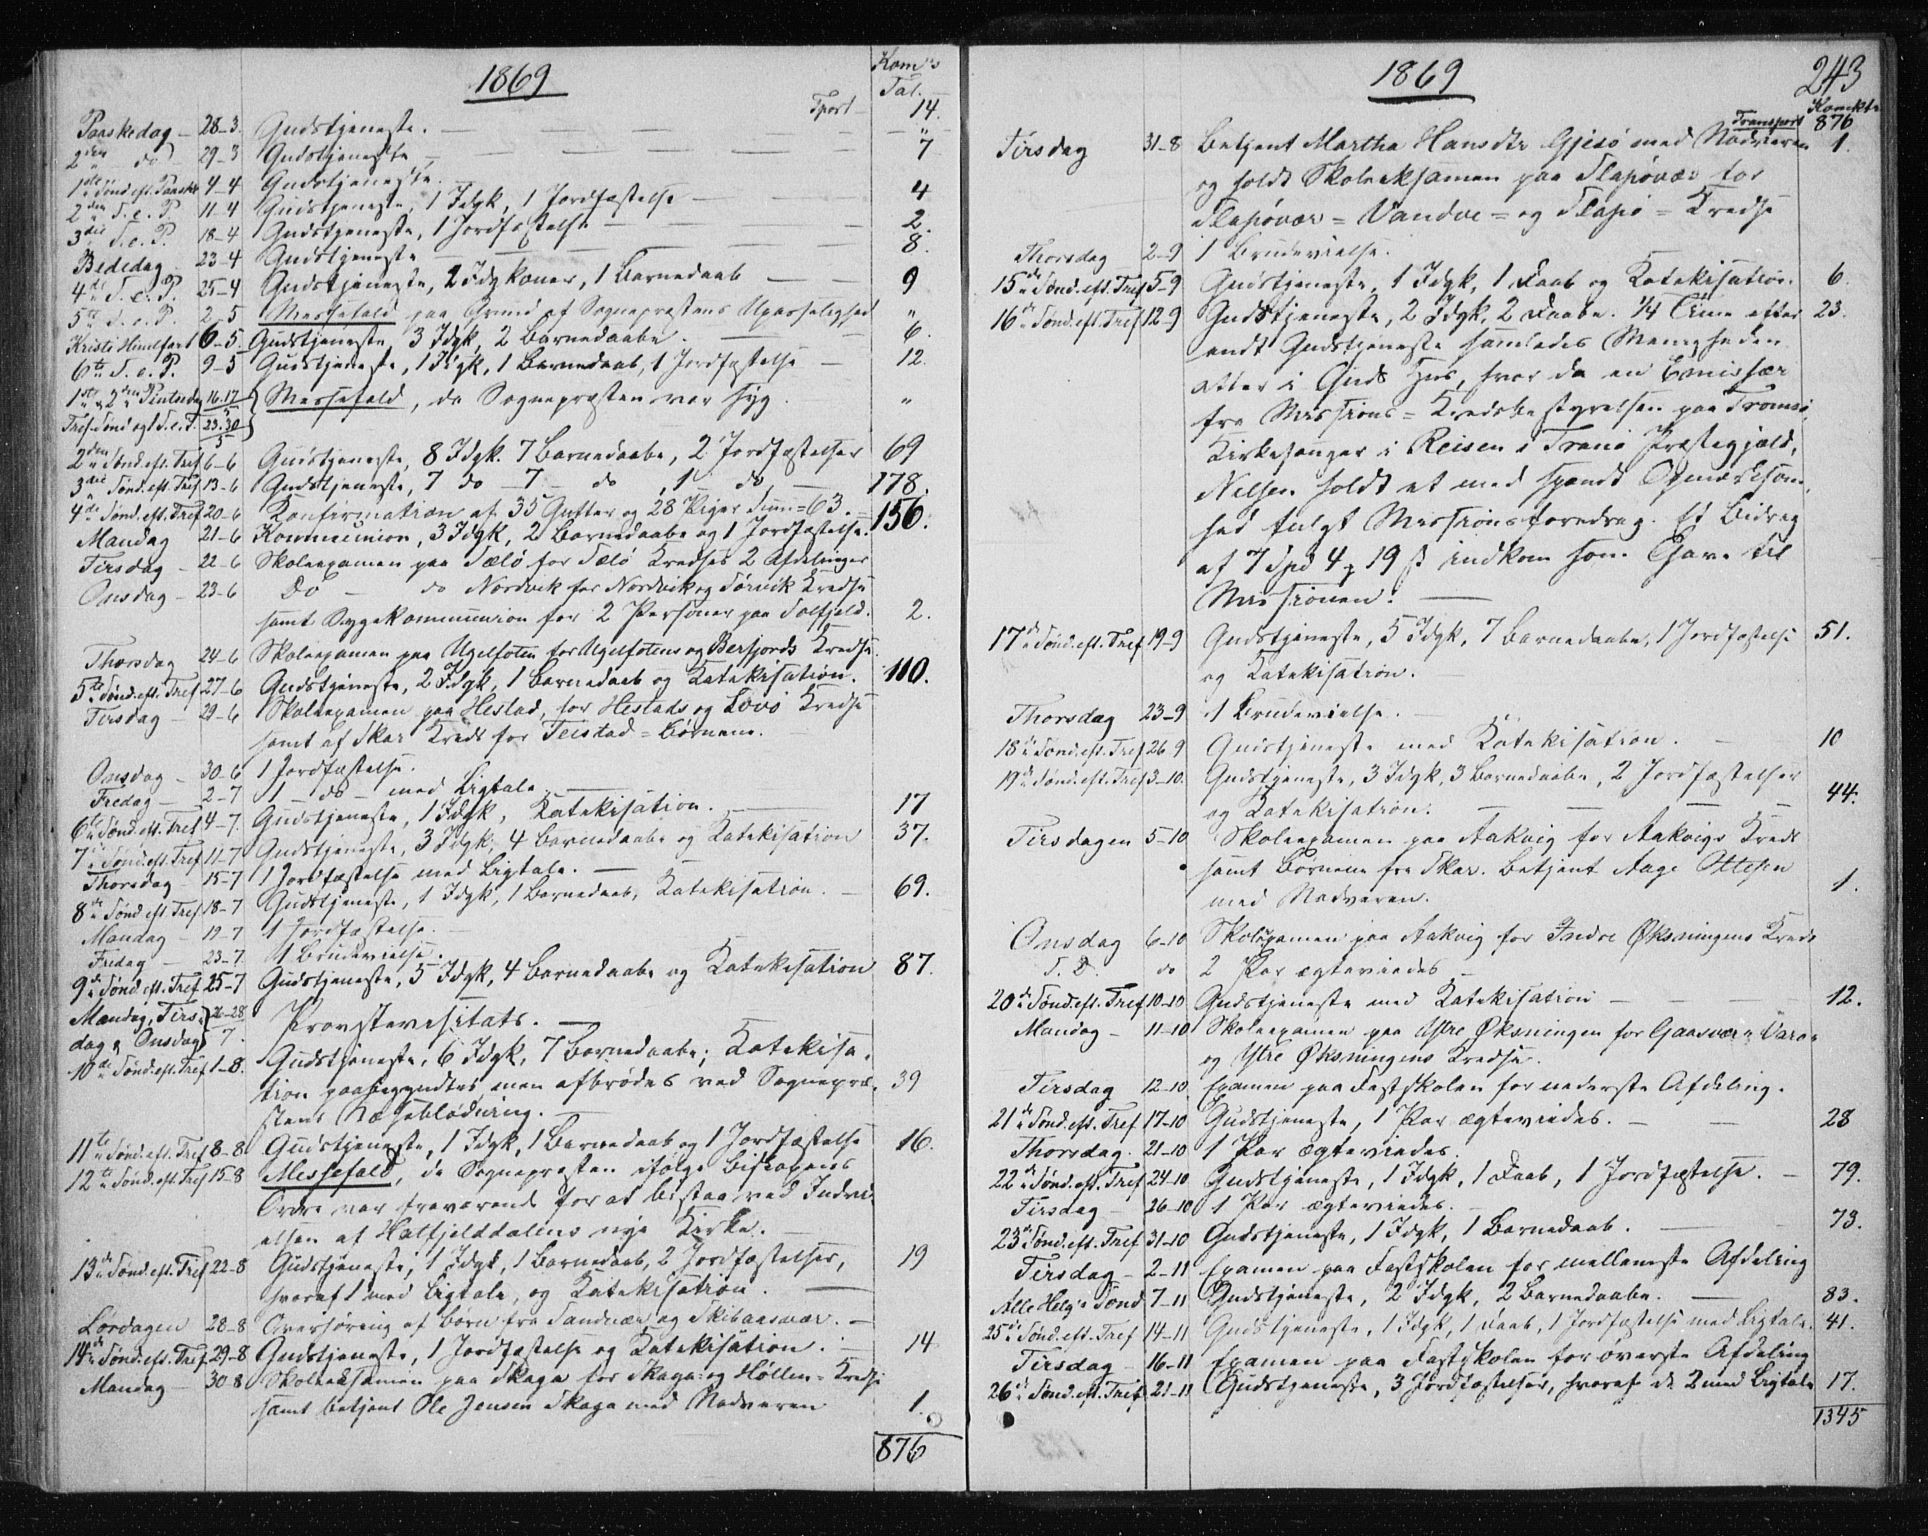 1869
Kom.s
Tal.
Tport 14.
Paaskedag — 28-3. Gudstjeneste. — — — — "
2den do 29-3 Gudstjeneste — — — — 7
1ste Sønd. eft. Paaske 4-4 Gudstjeneste.
2den S. e. P. 11-4 Gudstjeneste, 1 Idgk, 1 Jordfæstelse — — 4
3die S. e. P. 18-4 Gudstjeneste, 1 Jordfæstelse — — 2.
Bededag 23-4 Gudstjeneste — — 8.
4de S. e. P. 25-4 Gudstjeneste, 2 Idgkoner, 1 Barnedaab — 9
5te S. e. P. 2-5 Messefald paa Grund af Sognepræstens Upasselighed "
Kristi Himlfart 6-5. Gudstjeneste, 3 Idgk, 2 Barnedaabe. — 6.
6te S. e. P. 9-5 Gudstjeneste, 1 Idgk, 1 Barnedaab, 1 Jordfæstelse — 12.
1ste & 2den Pintsedag 16.17/5 Messefald, da Sognepræsten var syg. "
Tref. Sønd og 1 S. e. T. 23.30/5
2den Sønd. eft. Tref 6-6 Gudstjeneste, 8 Idgk. 7 Barnedaabe, 2 Jordfæstelser 69
3die Sønd. eft. Tref 13-6 Gudstjeneste, 7 do 7 do, 1 do, — 178.
4de Sønd. eft. Tref 20-6 Konfirmation af 35 Gutter og 28 Piger Sum = 63. —
Mandag 21-6 Kommunion, 3 Idgk, 2 Barnedaabe og 1 Jordfæstelse. 156.
Tirsdag — 22-6 Skoleexamen paa Sælø for Sælø Kredses 2 Afdelinger
Onsdag — 23-6 Do — do Nordvik for Nordvik og Sørvik Kredse
samt Sygekommunion for 2 Personer paa Solfjeld. 2.
Thorsdag 24-6 Skoleexamen paa Ugelfoten for Ugelfotens og Berfjords Kredse.
5te Sønd. eft. Tref 27-6 Gudstjeneste, 2 Idgk, 1 Barnedaab og Katekisation. 110.
Tirsdag — 29-6 Skoleexamen paa Hestad, for Hestads og Lovø Kredse
samt af Skar Kreds for Teistad = Børnene. —
Onsdag — 30-6 1 Jordfæstelse.
Fredag — 2-7 1 — do — med Ligtale. —
6te Sønd. eft. Tref 4-7. Gudstjeneste, 1 Idgk, Katekisation. — 17
7de Sønd. eft. Tref 11-7 Gudstjeneste, 3 Idgk, 4 Barnedaabe og Katekisation 37.
Thorsdag — 15-7 1 Jordfæstelse med Ligtale. —
8de Sønd. eft. Tref 18-7 Gudstjeneste, 1 Idgk, 1 Barnedaab, Katekisation. — 69.
Mandag — 19-7 1 Jordfæstelse. —
Fredag — 23-7 1 Brudevielse.
9de Sønd. eft. Tref 25-7 Gudstjeneste, 5 Idgk, 4 Barnedaabe og Katekisation 87.
Mandag, Tirs- 26-28 Provstevisitats. —
dag & Onsdag 7.
10de Sønd. eft. Tref 1-8. Gudstjeneste, 6 Idgk, 7 Barnedaabe; Katekisa-
tion paabegyndtes, men afbrødes ved Sognepræ- 39
stens Næseblødning. —
11te Sønd. eft. Tref 8-8 Gudstjeneste, 1 Idgk, 1 Barnedaab og 1 Jordfæstelse 16.
12te Sønd. eft. Tref 15-8 Messefald, da Sognepræsten ifølge Biskopens
Ordre var fraværende for at bistaa ved Indvi-
elsen af Hatfjelddalens nye Kirke.
13de Sønd. eft. Tref 22-8 Gudstjeneste, 1 Idgk, 1 Barnedaab, 2 Jordfæstelser, 19
hvoraf 1 med Ligtale, og Katekisation. —
Lørdagen 28-8 Overhøring af Børn fra Sandnær og Skibaasvær. —
14de Sønd. eft. Tref. 29-8 Gudstjeneste, 1 Jordfæstelse og Katekisation. — 14.
Mandag — 30-8 Skoleeksamen paa Skaga for Skaga- og Høllen = Kredse
samt betjent Ole Jensen Skaga med Nadveren 1.
876
1869
243
Komkte
Transport 876
Tirsdag 31-8 Betjent Martha Hansdtr Gjesø med Nadveren 1.
og holdt Skoleeksamen paa Flasøvær for
Flasøvær = Vandve = og Flasø = Kredse
Thorsdag 2-9 1 Brudevielse.
15de Sønd. eft. Tref 5-9 Gudstjeneste, 1 Idgk, 1 Daab og Katekisation. 6.
16de Sønd. eft. Tref 12-9 Gudstjeneste, 2 Idgk, 2 Daabe. 1/4 Time efter 23.
endt Gudstjeneste samledes Menigheden
atter i Guds Hus, hvor da en Emissær
fra Missions = Kredsbestyrelsen paa Tromsø
Kirkesanger i Reisen i Tranø Præstegjæld,
Nilsen holdt et med spændt Opmærksom-
hed fulgt Missionsforedrag. Et Bidrag
af 7 Spd 4 ꝥ 19 ß indkom som Gave til
Missionen. —
17de Sønd. eft. Tref 19-9 Gudstjeneste, 5 Idgk, 7 Barnedaabe, 1 Jordfæstelse 51.
og Katekisation. —
Thorsdag 23-9 1 Brudevielse. —
18de Sønd. eft. Tref 26-9 Gudstjeneste med Katekisation. 10
19de Sønd. eft. Tref 3-10. Gudstjeneste, 3 Idgk, 3 Barnedaabe, 2 Jordfæstelser
og Katekisation. — — — 44.
Tirsdagen 5-10 Skoleexamen paa Aakvig for Aakvigs Kreds
samt Børnene fra Skar. Betjent Aage Ottesen
med Nadveren. 1.
Onsdag 6-10 Skoleexamen paa Aakvig for Indre Øksningens Kreds
S. D. do 2 Par ægteviedes —
20de Sønd. eft. Tref 10-10 Gudstjeneste med Katekisation — — 12.
Mandag — 11-10 Skoleexamen paa Ytre Øksningen for Gaasvær = Varø =
og Ytre Øksningens Kredse.
Tirsdag 12-10 Examen paa Fastskolen for nederste Afdeling.
21de Sønd. eft. Tref 17-10 Gudstjeneste, 1 Par ægteviedes. — — 28
Thorsdag. 21-10 1 Par ægteviedes.
22de Sønd. eft. Tref 24-10 Gudstjeneste, 1 Idgk, 1 Daab, 1 Jordfæstelse. — 79.
Tirsdag — 26-10 1 Par ægteviedes. —
23de Sønd. eft. Tref 31-10 Gudstjeneste, 1 Idgk, 1 Barnedaab. — 73.
Tirsdag — 2-11 Examen paa Fastskolen for mellemste Afdeling
Alle Helg's Sønd 7-11 Gudstjeneste, 2 Idgk, 2 Barnedaabe. — 83.
25de Sønd. eft. Tref 14-11 Gudstjeneste, 1 Idgk, 1 Daab, 1 Jordfæstelse med Ligtale. 41.
Tirsdag — 16-11 Examen paa Fastskolen for øverste Afdeling
26de Sønd. eft. Tref 21-11 Gudstjeneste, 3 Jordfæstelser, hvoraf de 2 med Ligtale 17.
1345